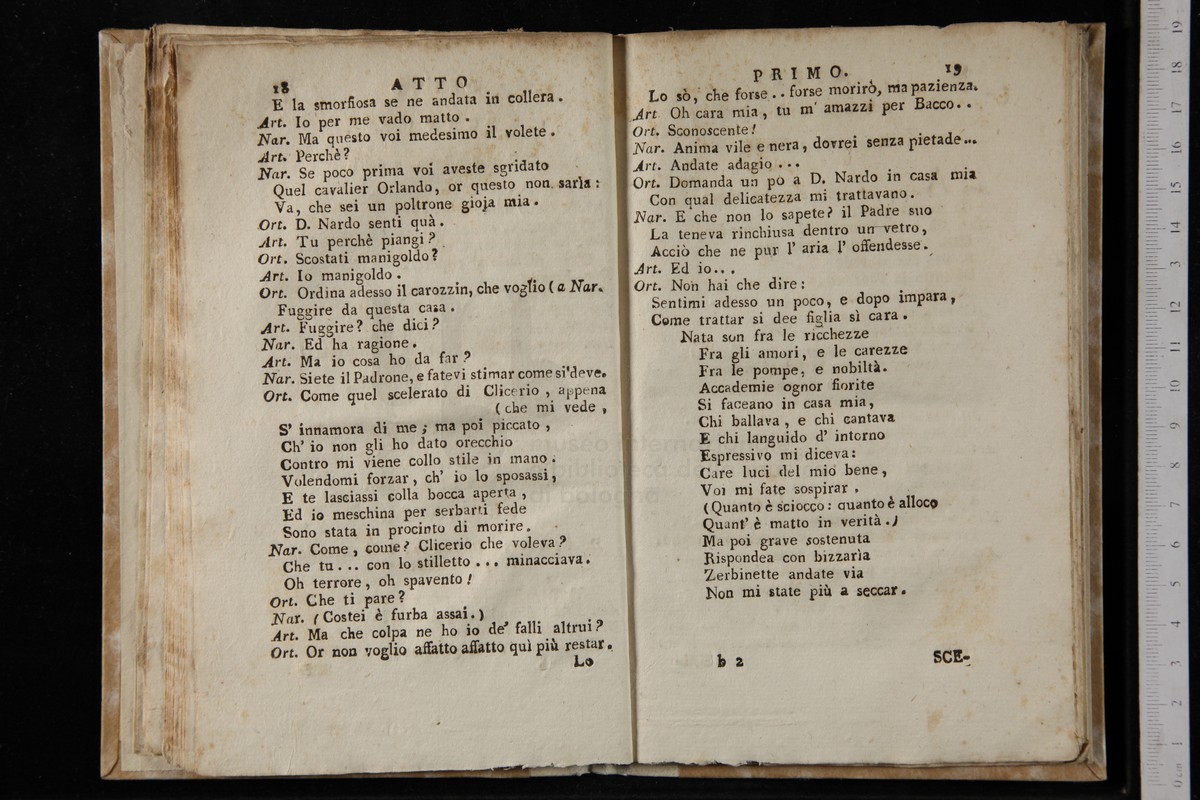 18 ATTO
E la smorfiosa se ne andata in collera.
Art. Io per me vado matto.
Nar. Ma questo voi medesimo il volete.
Art. Perchè?
Nar. Se poco prima voi aveste sgridato
Quel cavalier Orlando, or questo non sarìa:
Va, che sei un poltrone gioja mia.
Ort. D. Nardo senti quà.
Art. Tu perchè piangi?
Ort. Scostati manigoldo?
Art. Io manigoldo.
Ort. Ordina adesso il carozzin, che voglio (a Nar.
Fuggire da questa casa.
Art. Fuggire? che dici?
Nar. Ed ha ragione.
Art. Ma io cosa ho da far?
Nar. Siete il Padrone, e fatevi stimar come si deve.
Ort. Come quel scelerato di Clicerio, appena
(che mi vede,
S' innamora di me; ma poi piccato,
Ch' io non gli ho dato orecchio
Contro mi viene collo stile in mano.
Volendomi forzar, ch' io lo sposassi,
E te lasciassi colla bocca aperta,
Ed io meschina per serbarti fede
Sono stata in procinto di morire.
Nar. Come, come? Clicerio che voleva?
Che tu... con lo stilletto... minacciava.
Oh terrore, oh spavento!
Ort. Che ti pare?
Nar. (Costei è furba assai.)
Art. Ma che colpa ne ho io de' falli altrui?
Ort. Or non voglio affatto affatto quì più restar.
Lo
PRIMO. 19
Lo sò, che forse.. forse morirò, ma pazienza.
Art. Oh cara mia, tu m' amazzi per Bacco..
Ort. Sconoscente!
Nar. Anima vile e nera, dovrei senza pietade...
Art. Andate adagio...
Ort. Domanda un po a D. Nardo in casa mia
Con qual delicatezza mi trattavano.
Nar. E che non lo sapete? il Padre suo
La teneva rinchiusa dentro un vetro,
Acciò che ne pur l' aria l' offendesse.
Art. Ed io...
Ort. Non hai che dire:
Sentimi adesso un poco, e dopo impara,
Come trattar si dee figlia sì cara.
Nata son fra le ricchezze
Fra gli amori, e le carezze
Fra le pompe, e nobiltà.
Accademie ognor fiorite
Si faceano in casa mia,
Chi ballava, e chi cantava
E chi languido d' intorno
Espressivo mi diceva:
Care luci del mio bene,
Voi mi fate sospirar.
(Quanto è sciocco: quanto è alloco
Quant' è matto in verità.)
Ma poi grave sostenuta
Rispondea con bizzarìa
Zerbinette andate via
Non mi state più a seccar.
b 2 SCE-